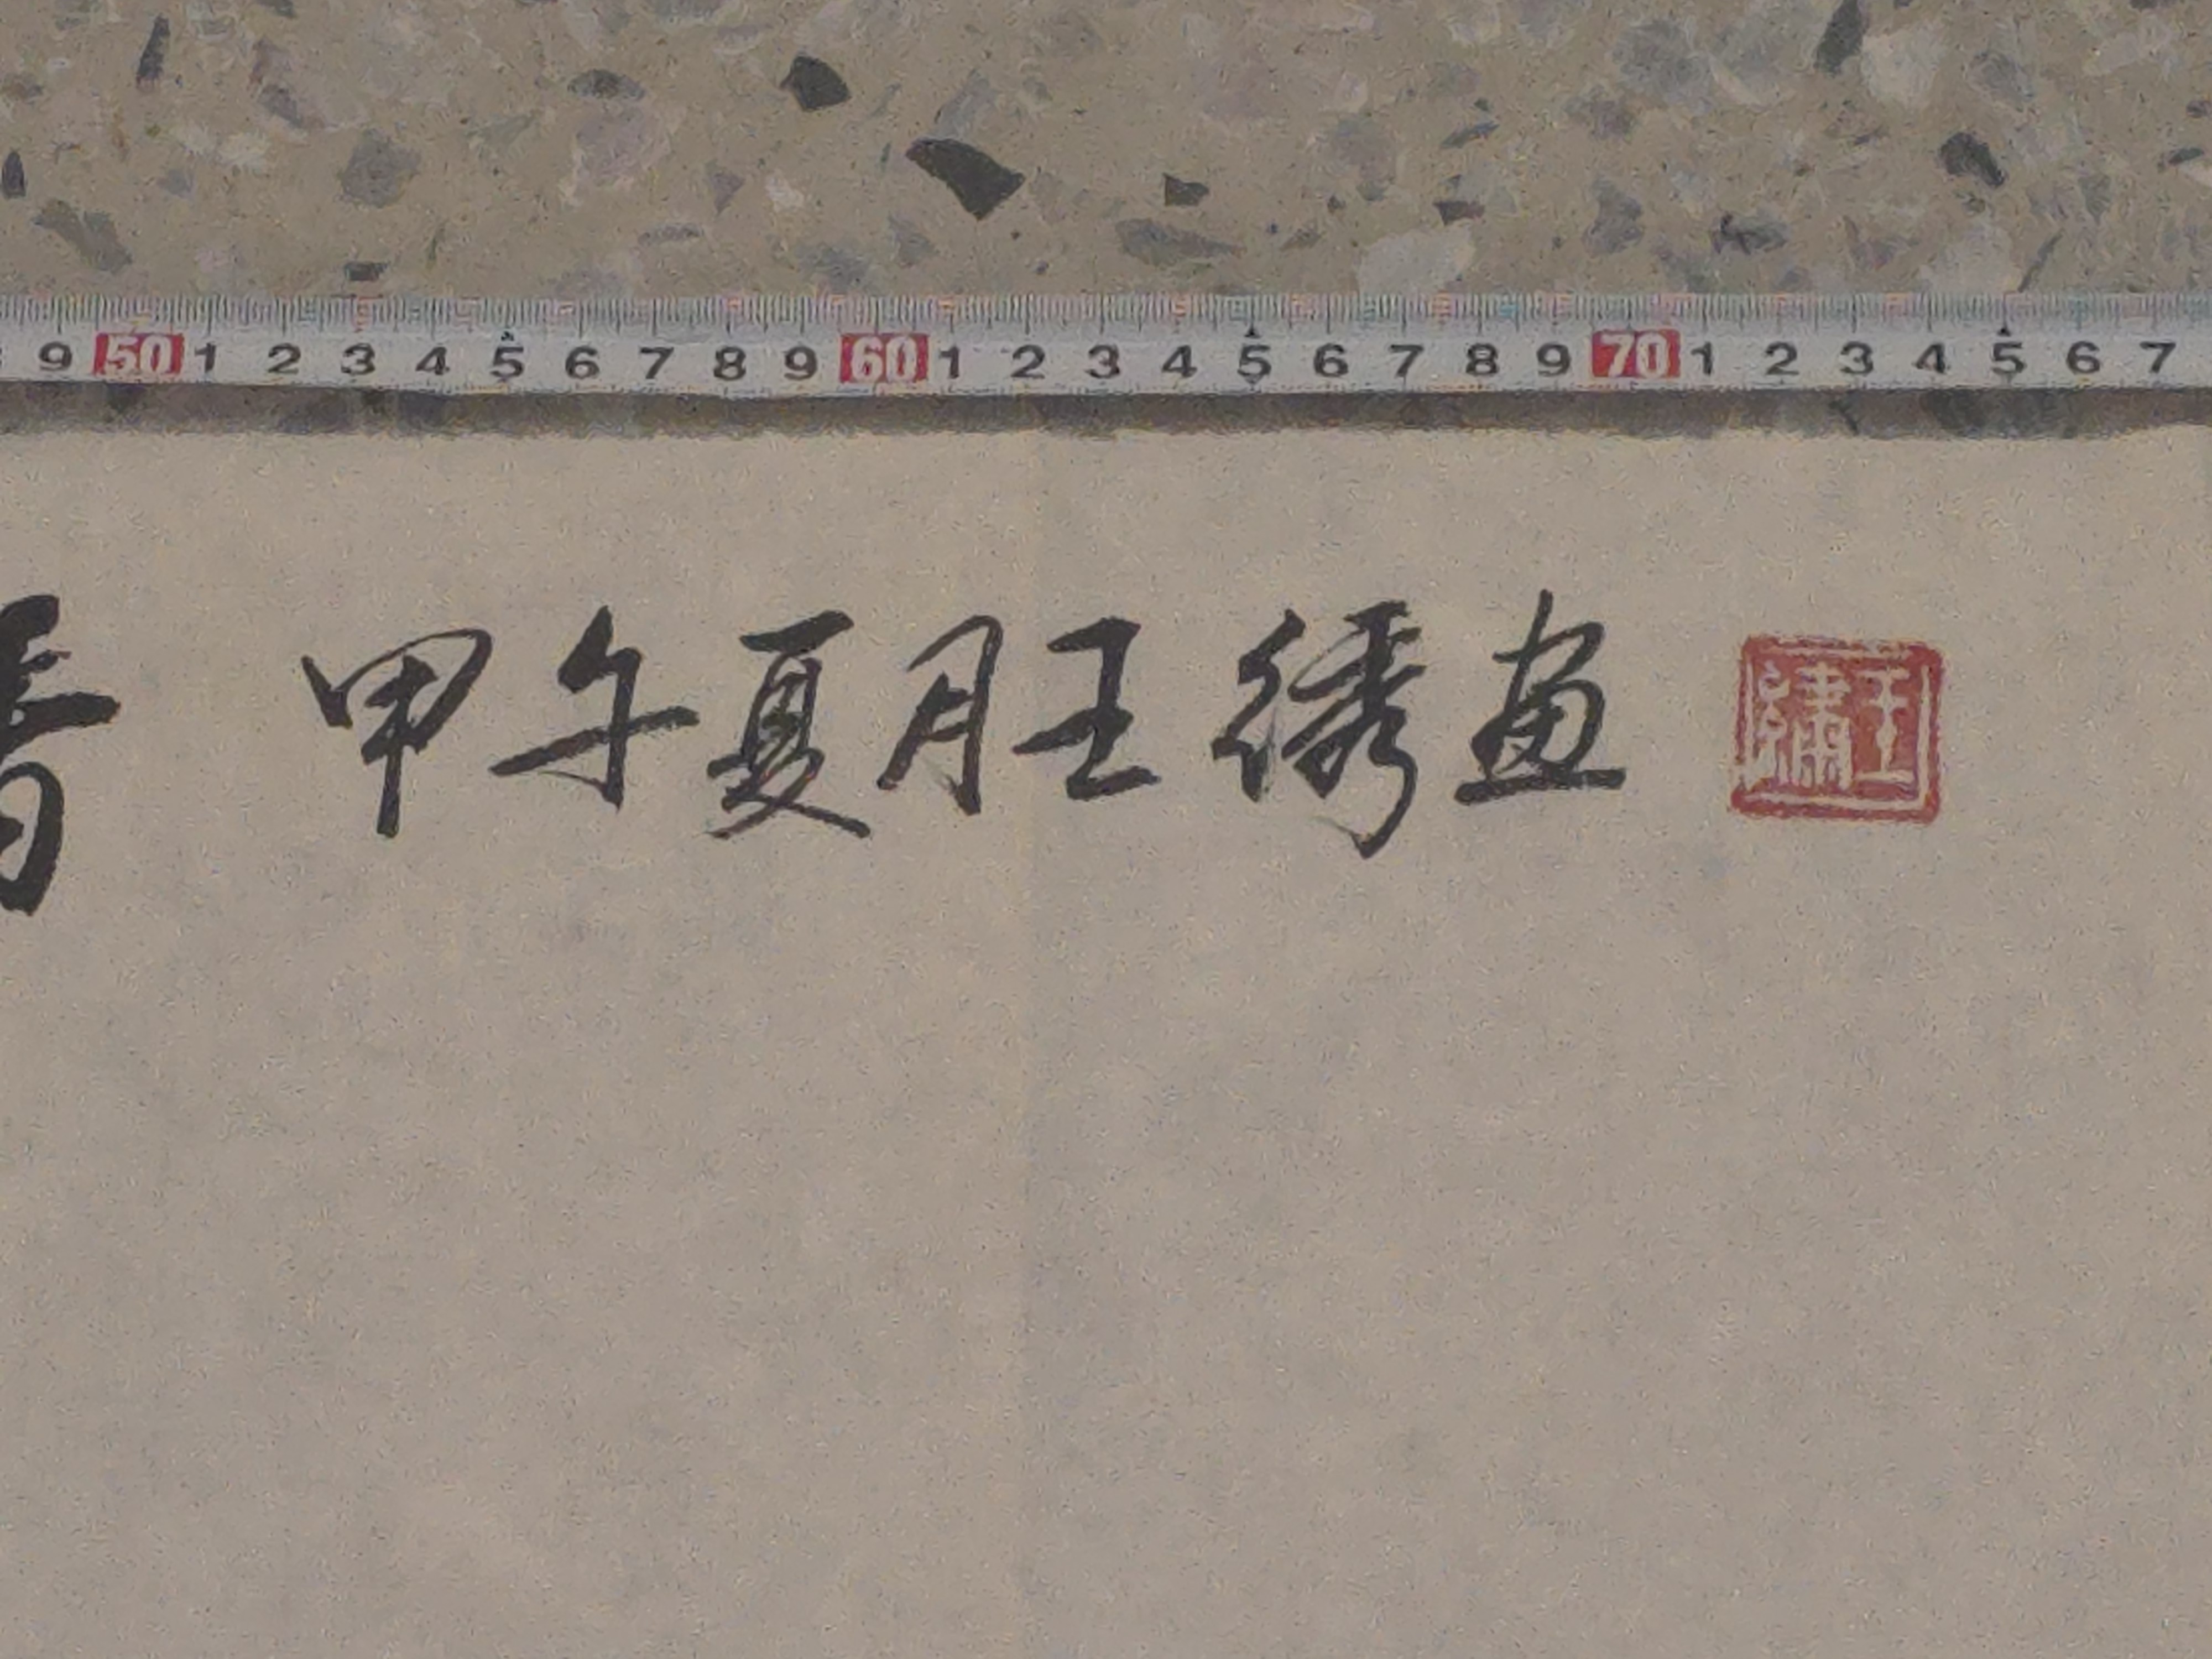 9 50 1 2 3 4 5 6 7 8 9 60 1 2 3 4 5 6 7 8 9 70 1 2 3 4 5 6 7
甲午夏月王绣画
王繡